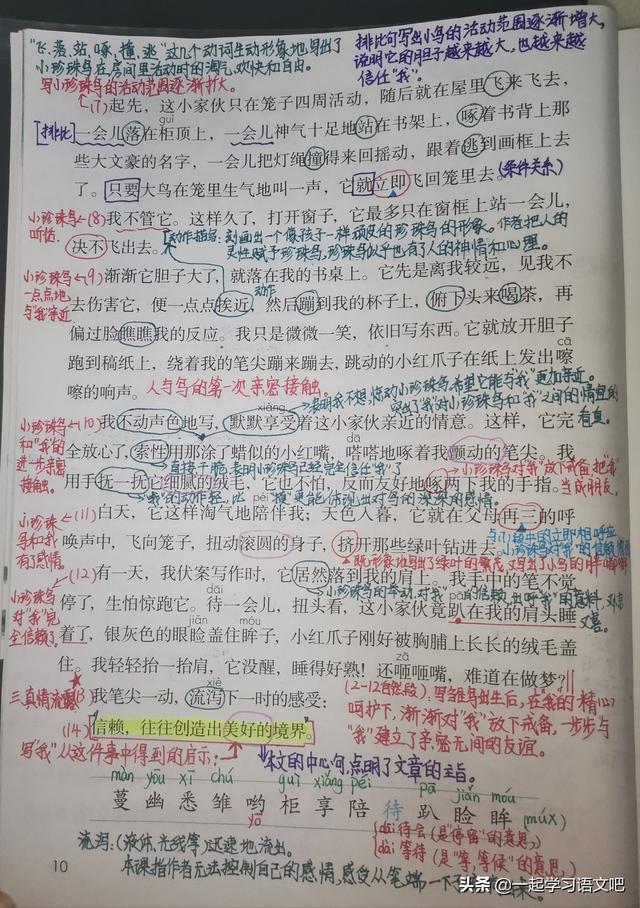 "飞、落、站、啄、撞、逃"这几个动词生动形象地写出了
小珍珠鸟在房间里活动时的淘气、欢快和自由。
排比句写出小鸟的活动范围逐渐增大,
说明它的胆子越来越大,也越来越
信任"我"。
写小珍珠鸟的活动范围逐渐扩大。
(7)起先,这小家伙只在笼子四周活动,随后就在屋里飞来飞去,
guì
[排比]一会儿落在柜顶上,一会儿神气十足地站在书架上,啄着书背上那
些大文豪的名字,一会儿把灯绳撞得来回摇动,跟着逃到画框上去
了。只要大鸟在笼里生气地叫一声,它就立即飞回笼里去。(条件关系)
小珍珠鸟
听话。
(8)我不管它。这样久了,打开窗子,它最多只在窗框上站一会儿,
决不飞出去。
动作描写:刻画出一个像孩子一样顽皮的珍珠鸟的形象。作者把人的
灵性赋予珍珠鸟,珍珠鸟似乎也有了人的神情和心理。
小珍珠鸟
一点点地
与"我"亲近
(9)渐渐它胆子大了,就落在我的书桌上。它先是离我较远,见我不
动作
去伤害它,便一点点挨近,然后蹦到我的杯子上,俯下头来喝茶,再
偏过脸瞧瞧我的反应。我只是微微一笑,依旧写东西。它就放开胆子
跑到稿纸上,绕着我的笔尖蹦来蹦去,跳动的小红爪子在纸上发出嚓
cā
嚓的响声。人与鸟的第一次亲密接触。
表明我不想惊动小珍珠鸟,希望它能与"我"更加亲近。
突出了"我"对小珍珠鸟和"我"之间的情谊的
小珍珠鸟
和"我"的
进一步亲密
接触。
xiǎng
(10)我不动声色地写,默默享受着这小家伙亲近的情意。这样,它完
全放心了,索性用那涂了蜡似的小红嘴,嗒嗒地啄着我颤动的笔尖。我
dā
直接干脆,表明小珍珠鸟已经完全信任"我"了
小珍珠鸟对"我"放下戒备,把"我"
当成朋友。
用手抚一抚它细腻的绒毛,它也不怕,反而友好地啄两下我的手指。
"我"的动作轻,比"摸"更能体现出对鸟的深深的感情。
小珍珠
鸟和我
有了感情。
péi
(11)白天,它这样淘气地陪伴我;天色入暮,它就在父母再三的呼
唤声中,飞向笼子,扭动滚圆的身子,挤开那些绿叶钻进去。
小珍珠鸟
对"我"完
全信赖了
(12)有一天,我伏案写作时,它居然落到我的肩上。我手中的笔不觉
dāi
停了,生怕惊跑它。待一会儿,扭头看,这小家伙竟趴在我的肩头睡
pā
jiǎn
móu
着了,银灰色的眼睑盖住眸子,小红爪子刚好被胸脯上长长的绒毛盖
住。我轻轻抬一抬肩,它没醒,睡得好熟!还咂咂嘴,难道在做梦?
zā
三、真情流露
xiè
我笔尖一动,流泻下一时的感受:
(2-12自然段):写雏鸟出生后,在我的精心
呵护下,渐渐对"我"放下戒备,一步步与
"我"建立了亲密无间的友谊。
(14)信赖,往往创造出美好的境界。
写"我"从这件事中得到的启示:
本文的中心句,点明了文章的主旨。
màn yōu xī chú guì xiǎng péi pā jiǎn móu
蔓 幽 悉 雏 哟 柜 享 陪 待 趴 睑 眸
yō
流泻:(液体、光线等)迅速地流出。
dāi待会(是"停留"的意思)
dài等待(是"等,等候"的意思)
本课指作者无法控制自己的感情,感受从笔端一下子
10
头条 @一起学习语文吧